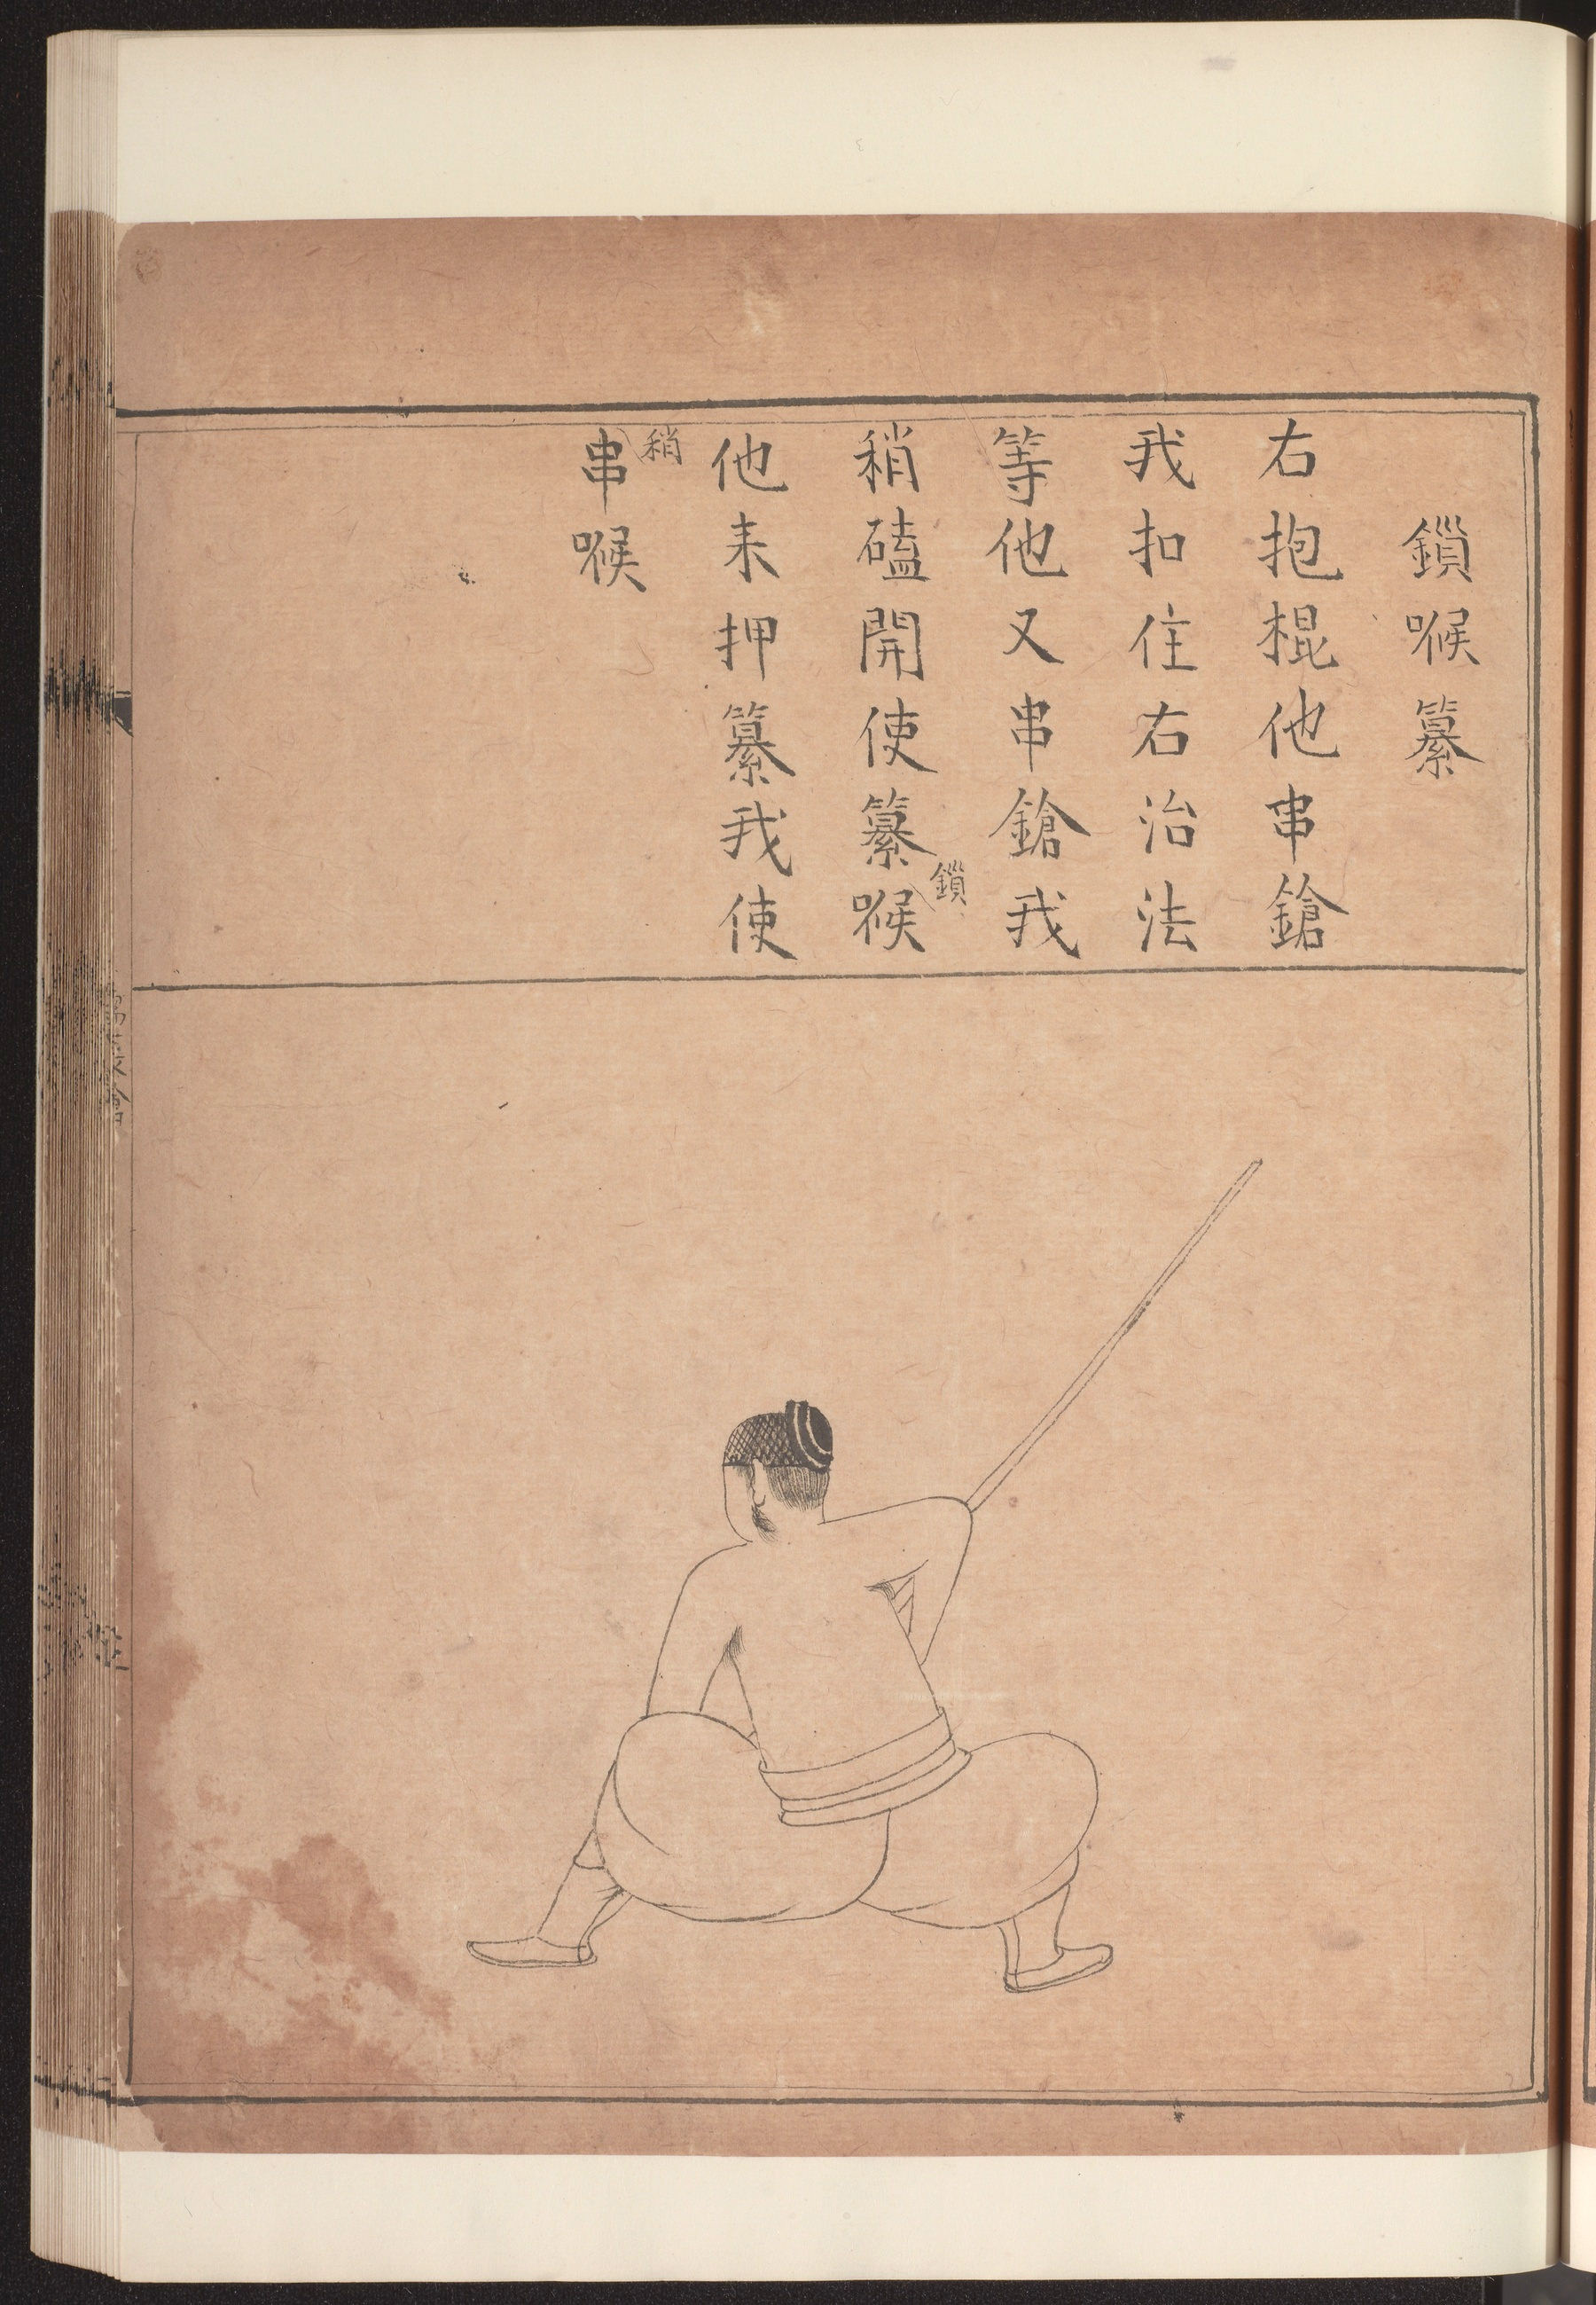 鎻喉纂
右抱棍他串鎗
我扣住右治法
等他又串鎗我
稍磕開使纂鎻喉
他来押纂我使
稍串喉